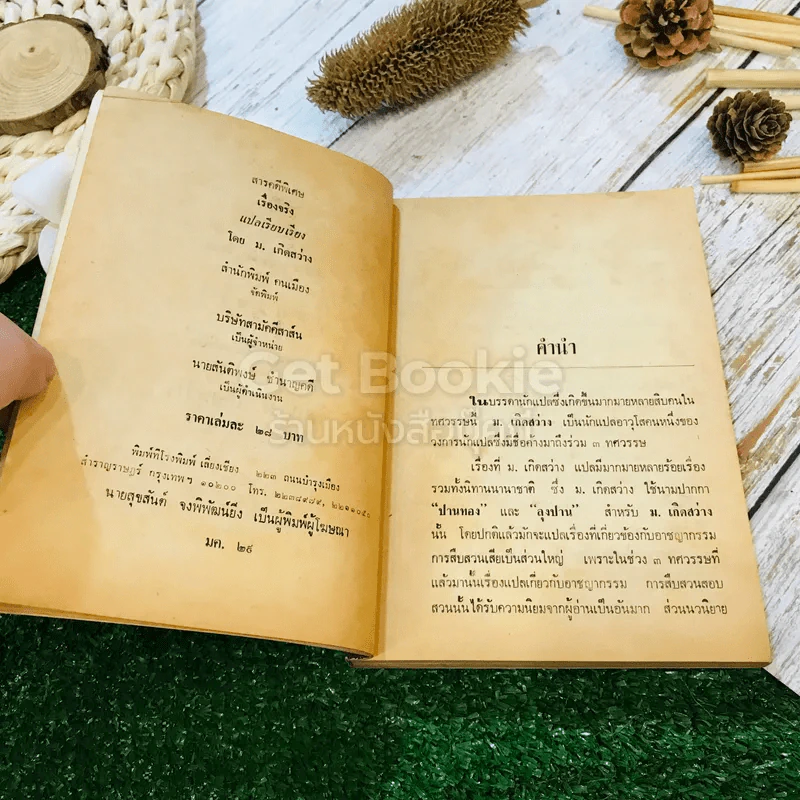 สารคดีพิเศษ
เรื่องจริง
แปลเรียบเรียง
โดย ม. เกิดสว่าง
สำนักพิมพ์ คนเมือง
จัดพิมพ์
บริษัทสามัคคีสาส์น
เป็นผู้จำหน่าย
นายสันติพงษ์ ชำนาญคดี
เป็นผู้ดำเนินงาน
ราคาเล่มละ ๒๘ บาท
พิมพ์ที่โรงพิมพ์ เลี่ยงเซียง ๒๒๓ ถนนบำรุงเมือง
สำราญราษฎร์ กรุงเทพฯ ๑๐๒๐๐ โทร.
นายสุขสันต์ จงพิพัฒน์ยิ่ง เป็นผู้พิมพ์ผู้โฆษณา
มค. ๒๙
คำนำ
ในบรรดานักแปลซึ่งเกิดขึ้นมากมายหลายสิบคนใน
ทศวรรษนี้ ม. เกิดสว่าง เป็นนักแปลอาวุโสคนหนึ่งของ
วงการนักแปลซึ่งมีชื่อค้างมาถึงร่วม ๓ ทศวรรษ
เรื่องที่ ม. เกิดสว่าง แปลมีมากมายหลายร้อยเรื่อง
รวมทั้งนิทานนานาชาติ ซึ่ง ม. เกิดสว่าง ใช้นามปากกา
“ปานทอง” และ “ลุงปาน” สำหรับ ม. เกิดสว่าง
นั้น โดยปกติแล้วมักจะแปลเรื่องที่เกี่ยวข้องกับอาชญากรรม
การสืบสวนเสียเป็นส่วนใหญ่ เพราะในช่วง ๓ ทศวรรษที่
แล้วมานั้นเรื่องแปลเกี่ยวกับอาชญากรรม การสืบสวนสอบ
สวนนั้นได้รับความนิยมจากผู้อ่านเป็นอันมาก ส่วนนวนิยาย
Get Bookie